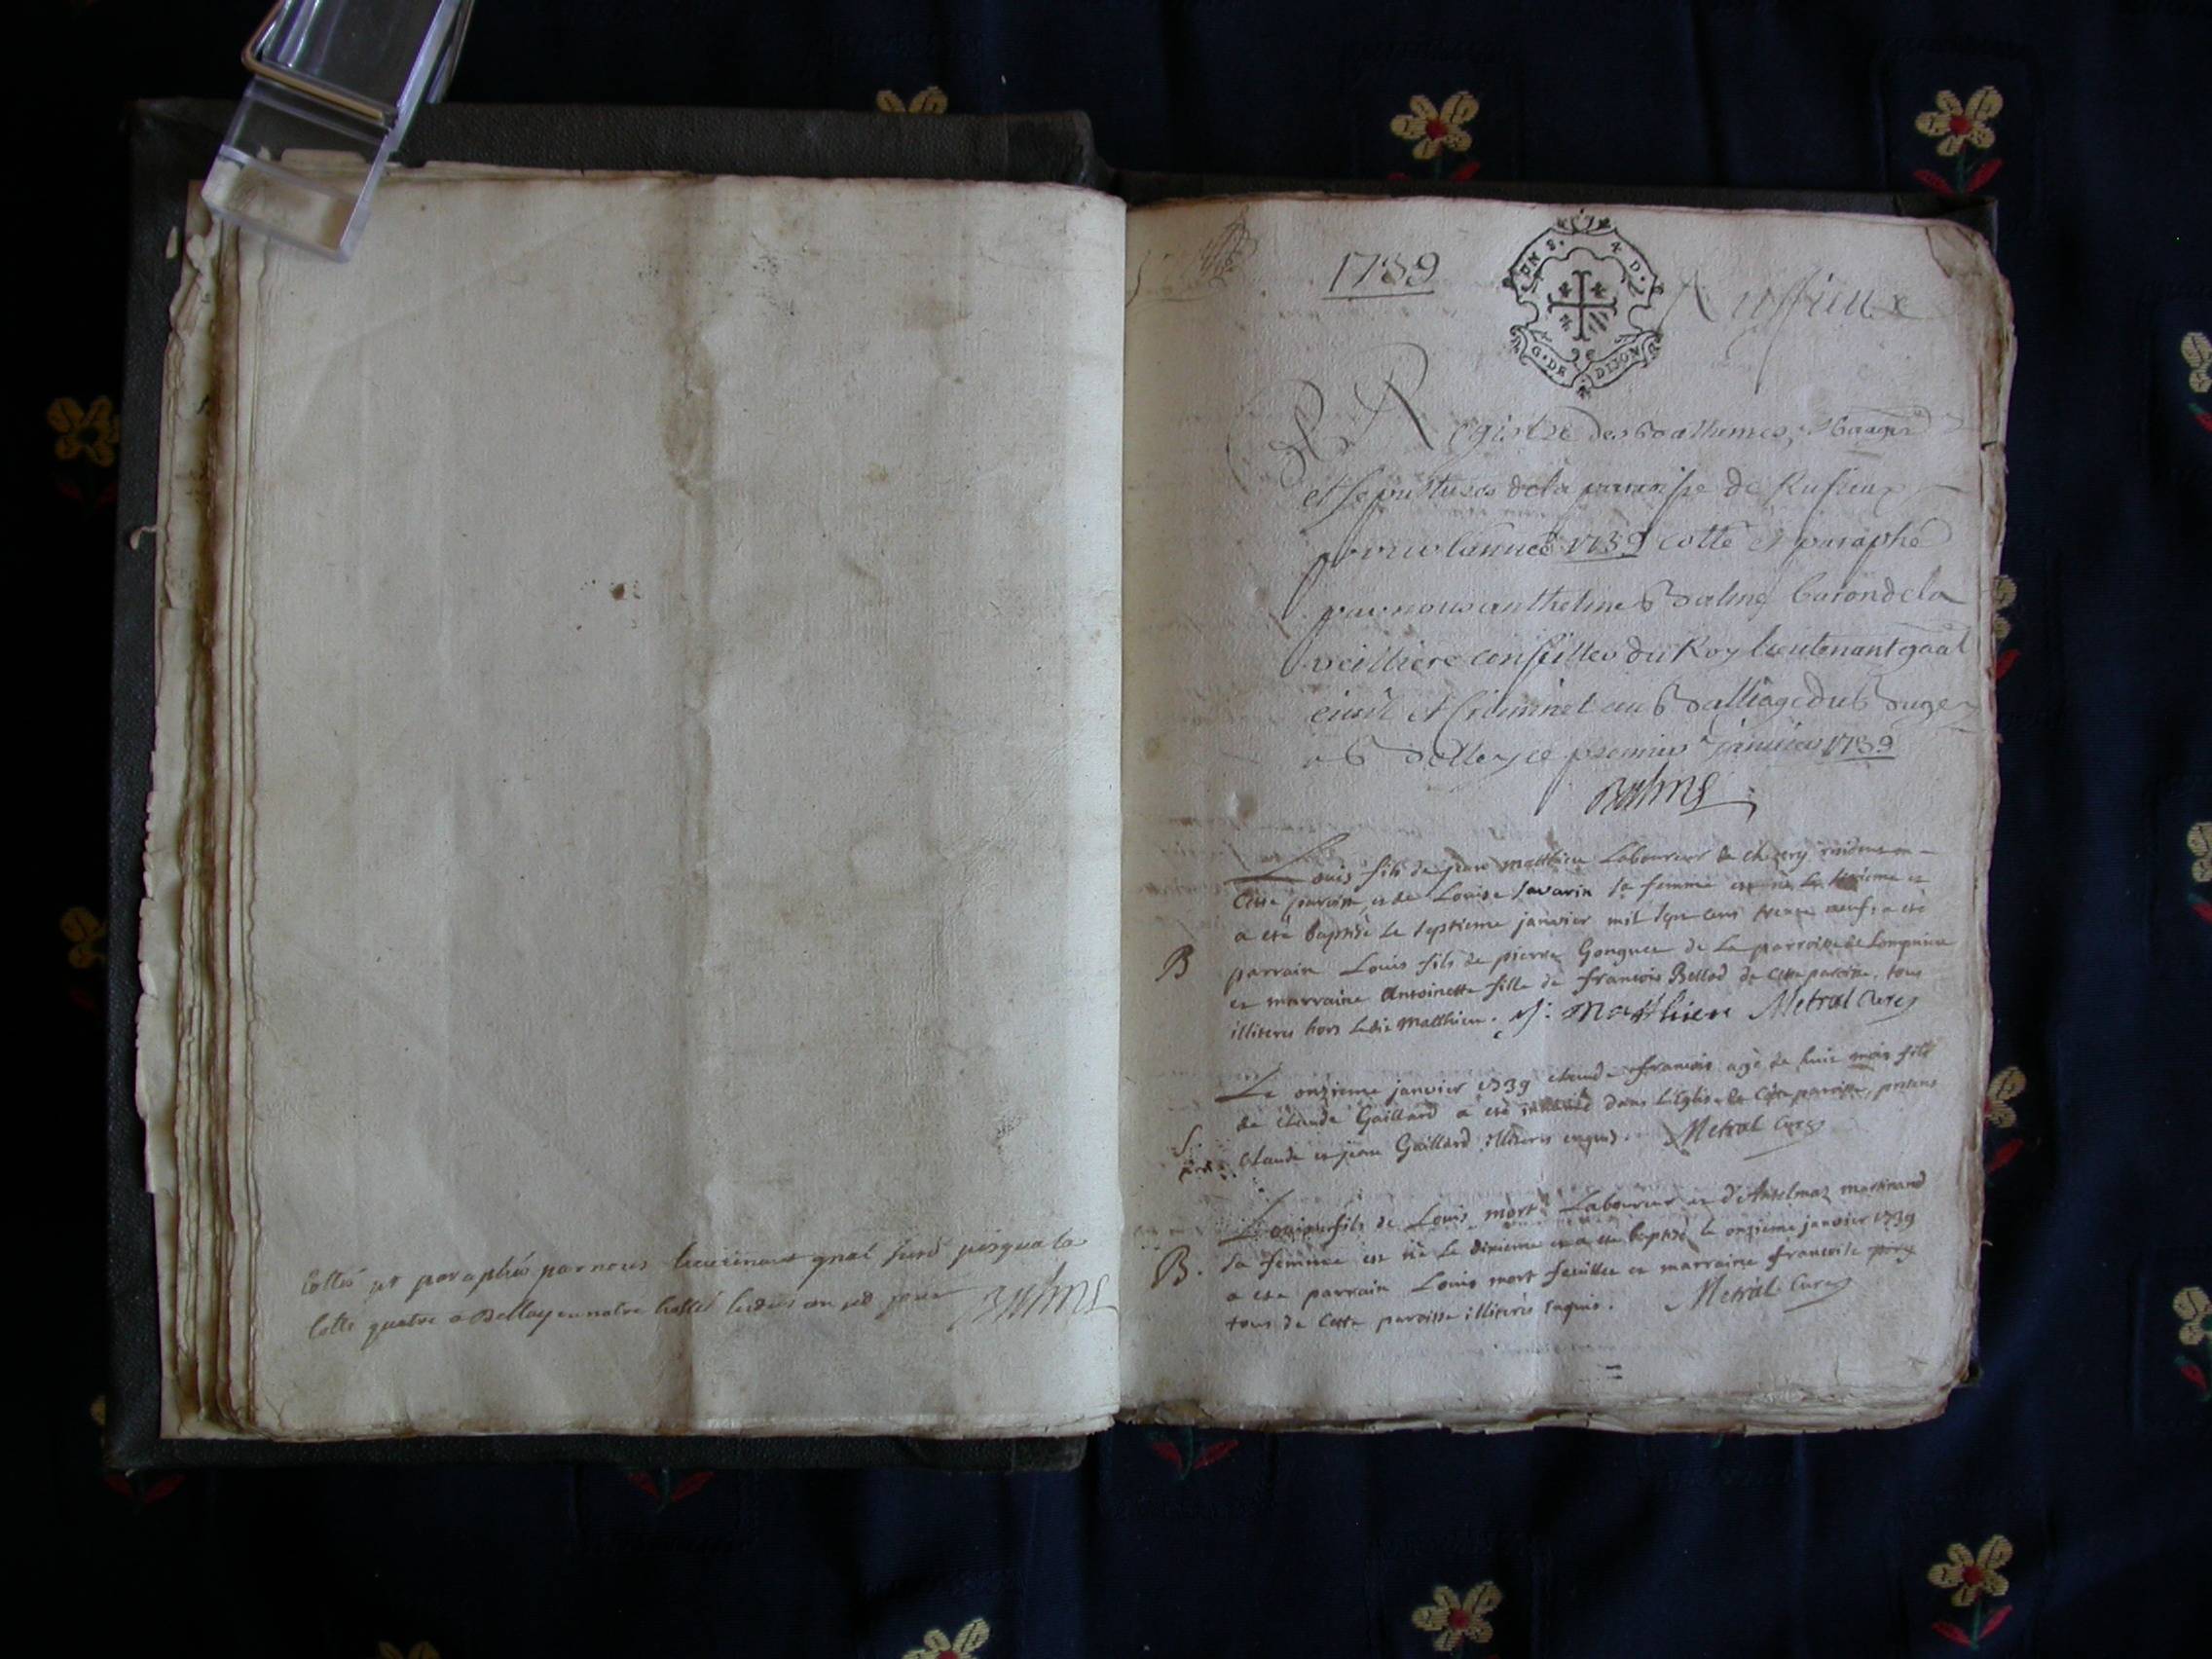 Cottés et paraphés par nous lieutenant gnal susd jusqua la
Cotte quatre a Belley en notre hostel lesdits an et jour Balme
1739
UN S. 4 D.
G. DE DIJON
Ruffieux
Registre des Bathemes, Mariages
et sepultures de la parroisse de Rufieux
pour lannée 1739 cotté et paraphé
par nous anthelme Balme baron de la
veilliere conseiller du Roy lieutenant gnal
civil et criminel au Balliage du Bugey
a Belley ce premier janvier 1739
Balme
Louis fils de jean Matthieu Laboureur de residens en
Cette paroisse et de Louise Savarin sa femme est né le sixieme et
a eté baptisé le septieme janvier mil sept cens trente neuf, a eté
B parrain Louis fils de pierre Gonguet de la parroisse de Lompnieu
et marraine Antoinette fille de francois Bellod de cette paroisse, tous
illiteres hors ledit Matthieu. J: Matthieu Metral Curé
Le onzieme janvier 1739 claude francois agé de huit mois fils
de claude Gaillard a eté inhumé dans l'Eglise de cette paroisse, presens
S. Claude et jean Gaillard illiteres enquis. Metral Curé
Louis fils de Louis mort Laboureur et d'Antelmaz martinand
B. sa femme est né le dixieme et a eté baptisé le onzieme janvier 1739
a eté parrain Louis mort et marraine francoise
tous de cette paroisse illiteres enquis. Metral Curé